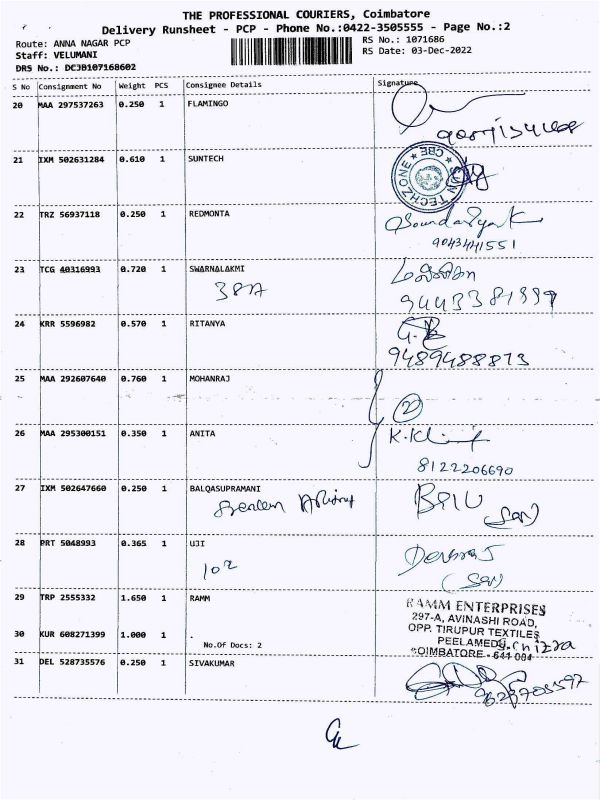 THE PROFESSIONAL COURIERS, Coimbatore
Delivery Runsheet - PCP - Phone No.:0422-3505555 - Page No.:2
Route: ANNA NAGAR PCP
RS No.: 1071686
Staff: VELUMANI
RS Date: 03-Dec-2022
DRS No.: DCJB107168602
S No Consignment No Weight PCS Consignee Details Signature
20 MAA 297537263 0.250 1 FLAMINGO
21 IXM 502631284 0.610 1 SUNTECH
SUN TECHZONE * CBE *
22 TRZ 56937118 0.250 1 REDMONTA
Soundarya K
9043441551
23 TCG 40316993 0.720 1 SWARNALAKMI
387A
24 KRR 5596982 0.570 1 RITANYA
9489488873
25 MAA 292607640 0.760 1 MOHANRAJ
2
26 MAA 295300151 0.350 1 ANITA
8122206690
27 IXM 502647660 0.250 1 BALQASUPRAMANI
28 PRT 5048993 0.365 1 UJI
102
29 TRP 2555332 1.650 1 RAMM
RAMM ENTERPRISES
297-A, AVINASHI ROAD,
OPP. TIRUPUR TEXTILES
PEELAMEDU,
COIMBATORE - 641 004
30 KUR 608271399 1.000 1 .
No.Of Docs: 2
31 DEL 528735576 0.250 1 SIVAKUMAR